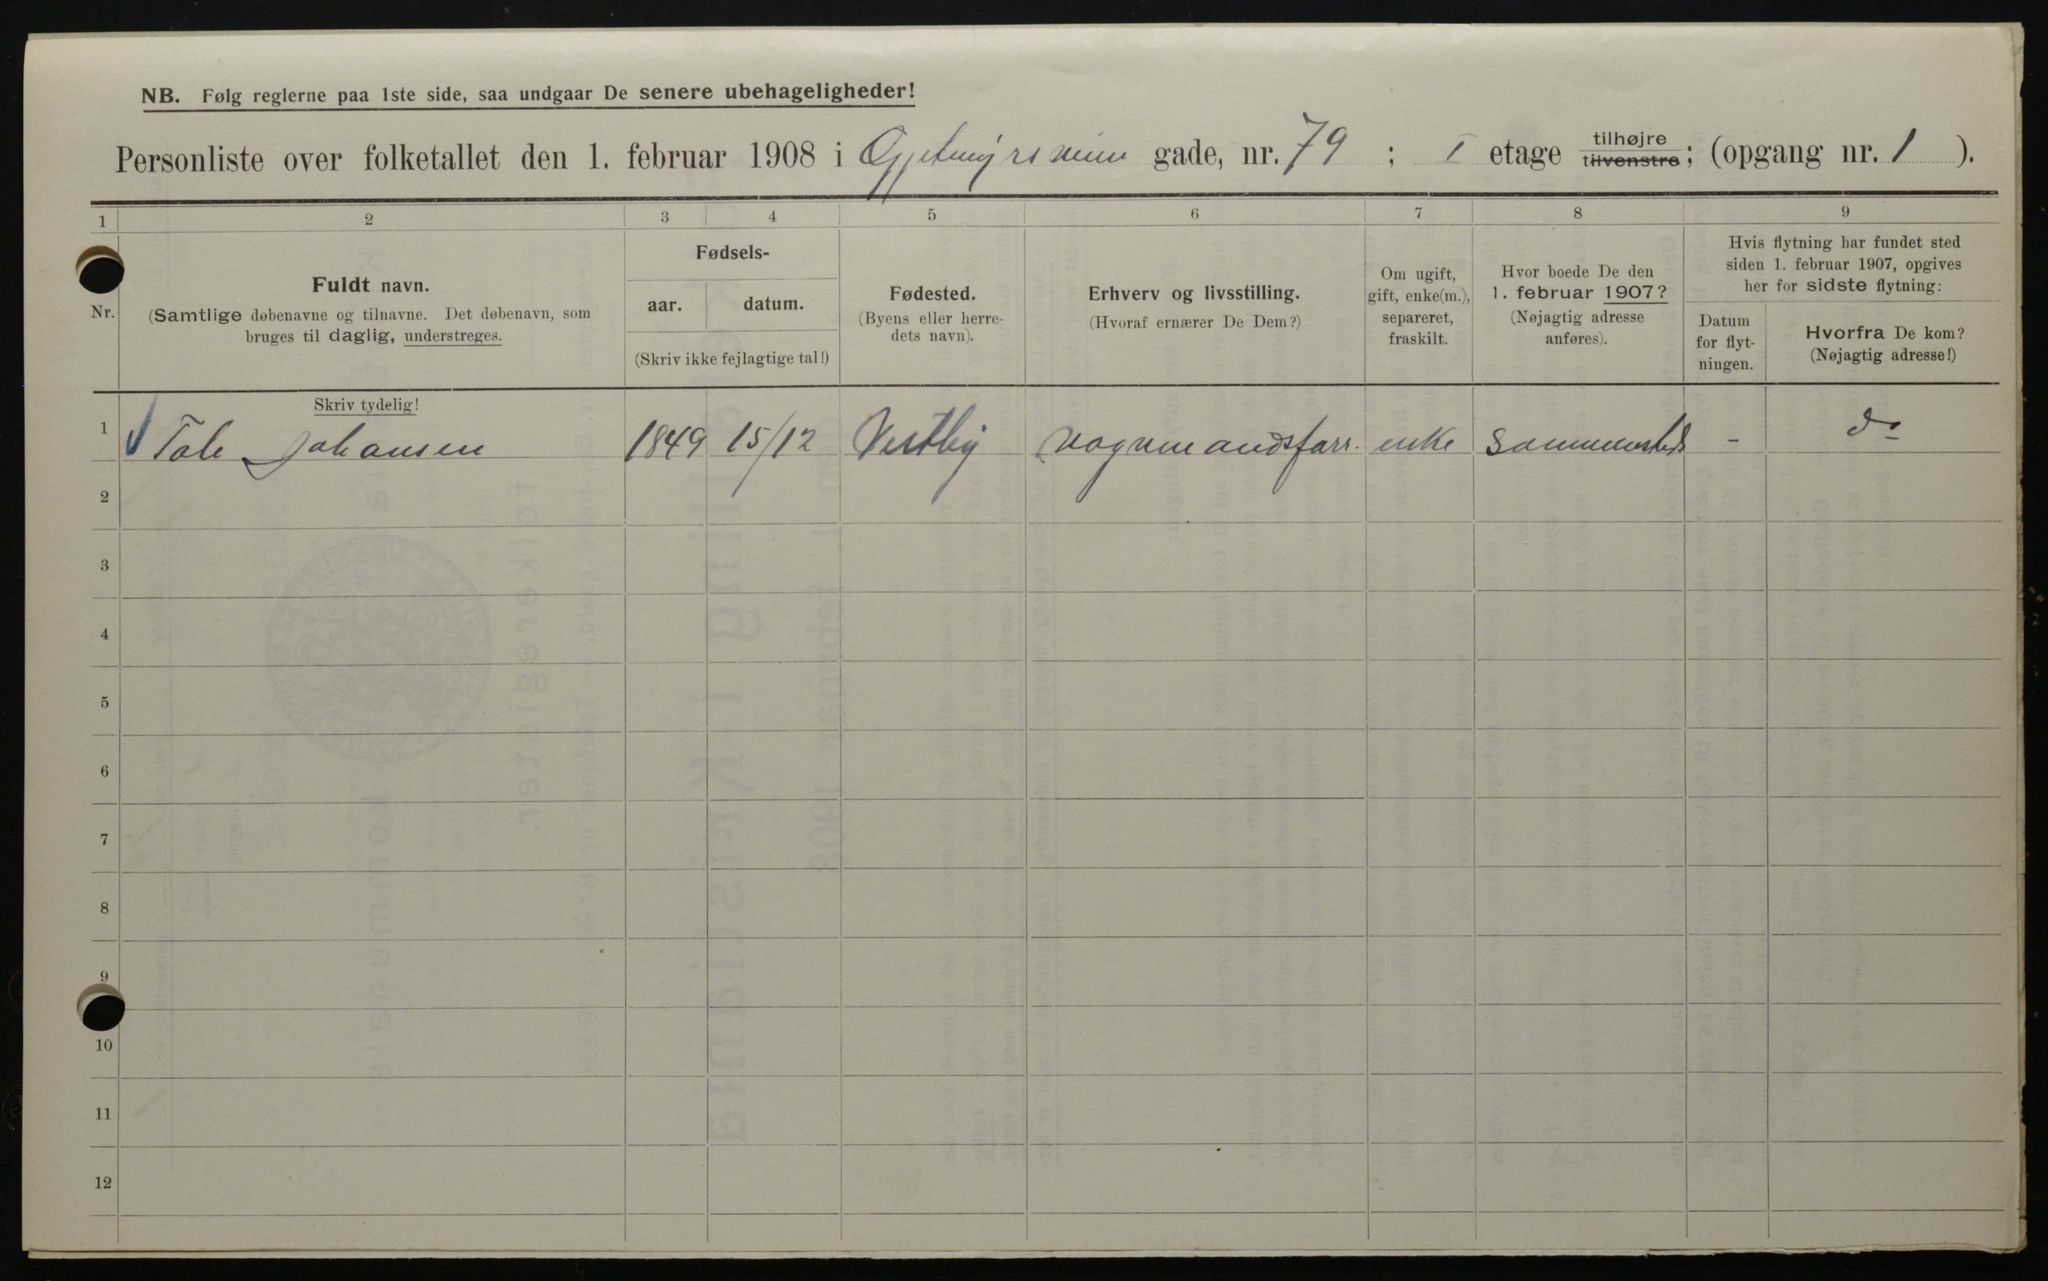 NB. Følg reglerne paa 1ste side, saa undgaar De senere ubehageligheder!
Personliste over folketallet den 1. februar 1908 i gade, nr. 79 ; I etage tilhøjre tilvenstre; (opgang nr. 1 ).
1 2 3 4 5 6 7 8 9
Nr.
Fuldt navn.
(Samtlige døbenavne og tilnavne. Det døbenavn, som
bruges til daglig, understreges.
Skriv tydelig!
Fødsels-
aar. datum.
(Skriv ikke fejlagtige tal!)
Fødested.
(Byens eller herre-
dets navn).
Erhverv og livsstilling.
(Hvoraf ernærer De Dem?)
Om ugift,
gift, enke(m.),
separeret,
fraskilt.
Hvor boede De den
1. februar 1907?
(Nøjagtig adresse
anføres).
Hvis flytning har fundet sted
siden 1. februar 1907, opgives
her for sidste flytning:
Datum
for flyt-
ningen.
Hvorfra De kom?
(Nøjagtig adresse!)
1 Tale Johansen 1849 15/12 Vestby vognmandsforr. enke sammesteds - do
2
3
4
5
6
7
8
9
10
11
12